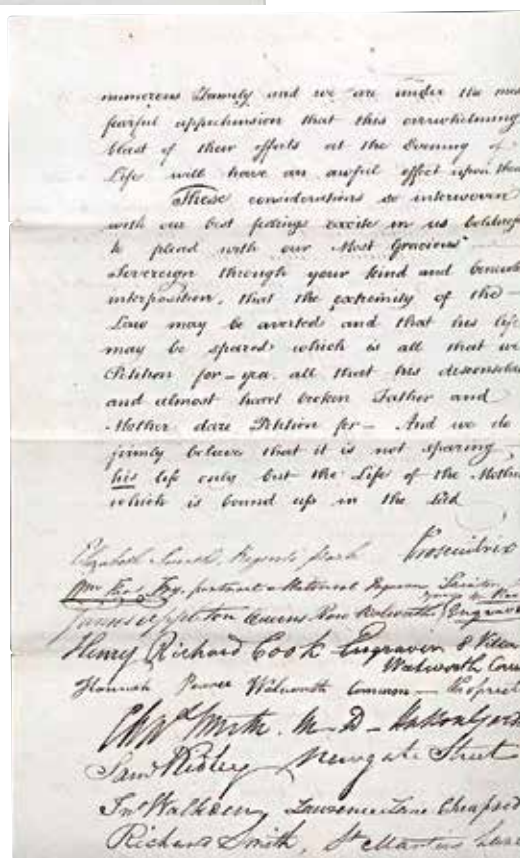 numerous Family and we are under the mos
fearful apprehension that this overwhelming
blast of their efforts at the Evening of
Life will have an awful effect upon them
These considerations so interwoven
with our best feelings excite in us boldness
to plead with our Most Gracious
Sovereign through your kind and benevole
interposition, that the extremity of the
Law may be averted and that his life
may be spared which is all that we
Petition for – yea all that his disconsolat
and almost heart broken Father and
Mother dare Petition for – And we do
firmly believe that it is not sparing
his life only but the Life of the Mothe
which is bound up in the Lad
Elizabeth Smith, Regents Park Prosecutrix
Portrait & Painter
James Appleton Queens Row Walworth Engrav
Henry Richard Cook Engraver 8 
Walworth Com
Hannah Pearce Walworth Common – 
Smith. M–D– Hatton Gard
Saml Ridley Newgate Street
Jno Lawrence Lane Cheapsid
Richard Smith, St Martins Lane